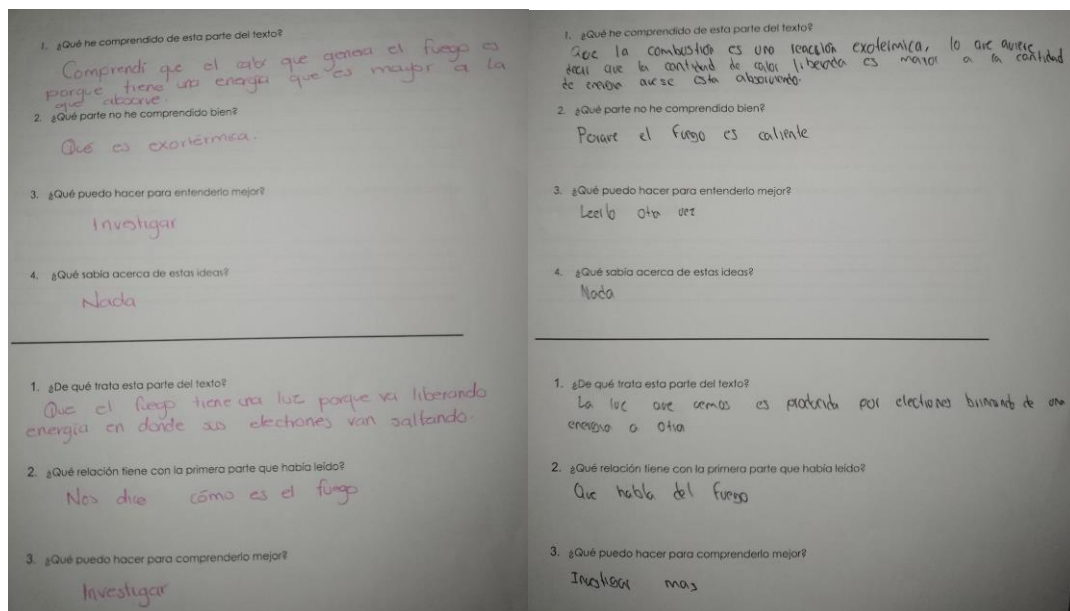 1. ¿Qué he comprendido de esta parte del texto?
Comprendí que el calor que genera el fuego es
porque tiene una energía que es mayor a la
que absorve.
2. ¿Qué parte no he comprendido bien?
Qué es exortérmica.
3. ¿Qué puedo hacer para entenderlo mejor?
Investigar
4. ¿Qué sabía acerca de estas ideas?
Nada
1. ¿De qué trata esta parte del texto?
Que el fuego tiene una luz porque va liberando
energía en donde sus electrones van saltando.
2. ¿Qué relación tiene con la primera parte que había leído?
Nos dice cómo es el fuego
3. ¿Qué puedo hacer para comprenderlo mejor?
Investigar
1. ¿Qué he comprendido de esta parte del texto?
Que la combustion es una reacción exotermica, lo que quiere
decir que la cantidad de calor liberada es maior a la cantidad
de energia que se esta absorviendo.
2. ¿Qué parte no he comprendido bien?
Porque el fuego es caliente
3. ¿Qué puedo hacer para entenderlo mejor?
Leerlo otra vez
4. ¿Qué sabía acerca de estas ideas?
Nada
1. ¿De qué trata esta parte del texto?
La luz que vemos es producida por electrones brincando de una
energia a otra
2. ¿Qué relación tiene con la primera parte que había leído?
Que habla del fuego
3. ¿Qué puedo hacer para comprenderlo mejor?
Investigar mas